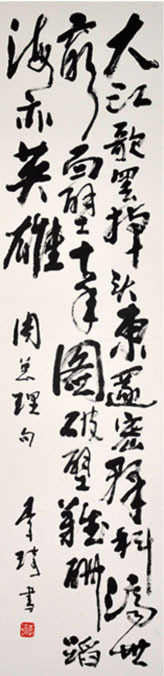 大江歌罢掉头東邃密群科濟世
窮面壁十年圖破壁難酬蹈
海亦英雄
周总理句
李琦書